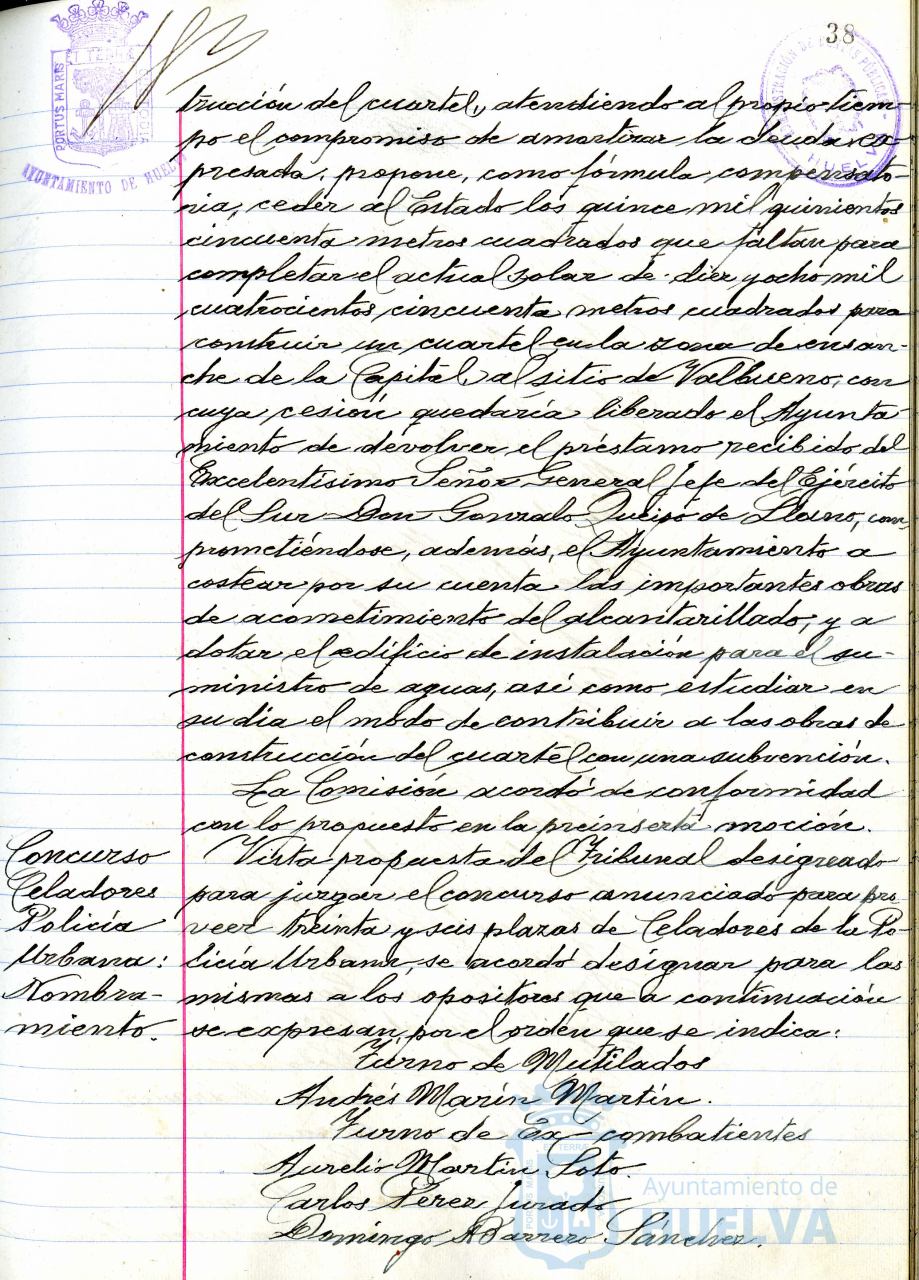 38
PORTUS MARIS
AYUNTAMIENTO DE HUELVA
HUELVA
trucción del cuartel, atendiendo al propio tiem-
po el compromiso de amortizar la deuda ex-
presada, propone, como fórmula compensato-
ria, ceder al Estado los quince mil quinientos
cincuenta metros cuadrados que faltan para
completar el actual solar de diez y ocho mil
cuatrocientos cincuenta metros cuadrados para
construir un cuartel en la zona de ensan-
che de la Capital, al sitio de Valbueno, con
cuya cesión quedaría liberado el Ayunta
miento de devolver el préstamo recibido del
Excelentísimo Señor General Jefe del Ejército
del Sur Don Gonzalo Queipo de Llano, com
prometiéndose, además, el Ayuntamiento a
costear por su cuenta las importantes obras
de acometimiento del alcantarillado, y a
dotar el edificio de instalación para el su-
ministro de aguas, así como estudiar en
su día el modo de contribuir a las obras de
construcción del cuartel con una subvención.
La Comisión acordó de conformidad
con lo propuesto en la preinserta moción.
Concurso
Celadores
Policía
Urbana:
Nombra-
miento.
Vista propuesta del Tribunal designado
para juzgar el concurso anunciado para pro
veer treinta y seis plazas de Celadores de la Po-
licía Urbana, se acordó designar para las
mismas a los opositores que a continuación
se expresan, por el orden que se indica:
Turno de Mutilados
Andrés Marín Martín.
Turno de Ex-combatientes
Aurelio Martín Soto.
Carlos Pérez Jurado
Domingo Barrero Sánchez.
Ayuntamiento de
HUELVA